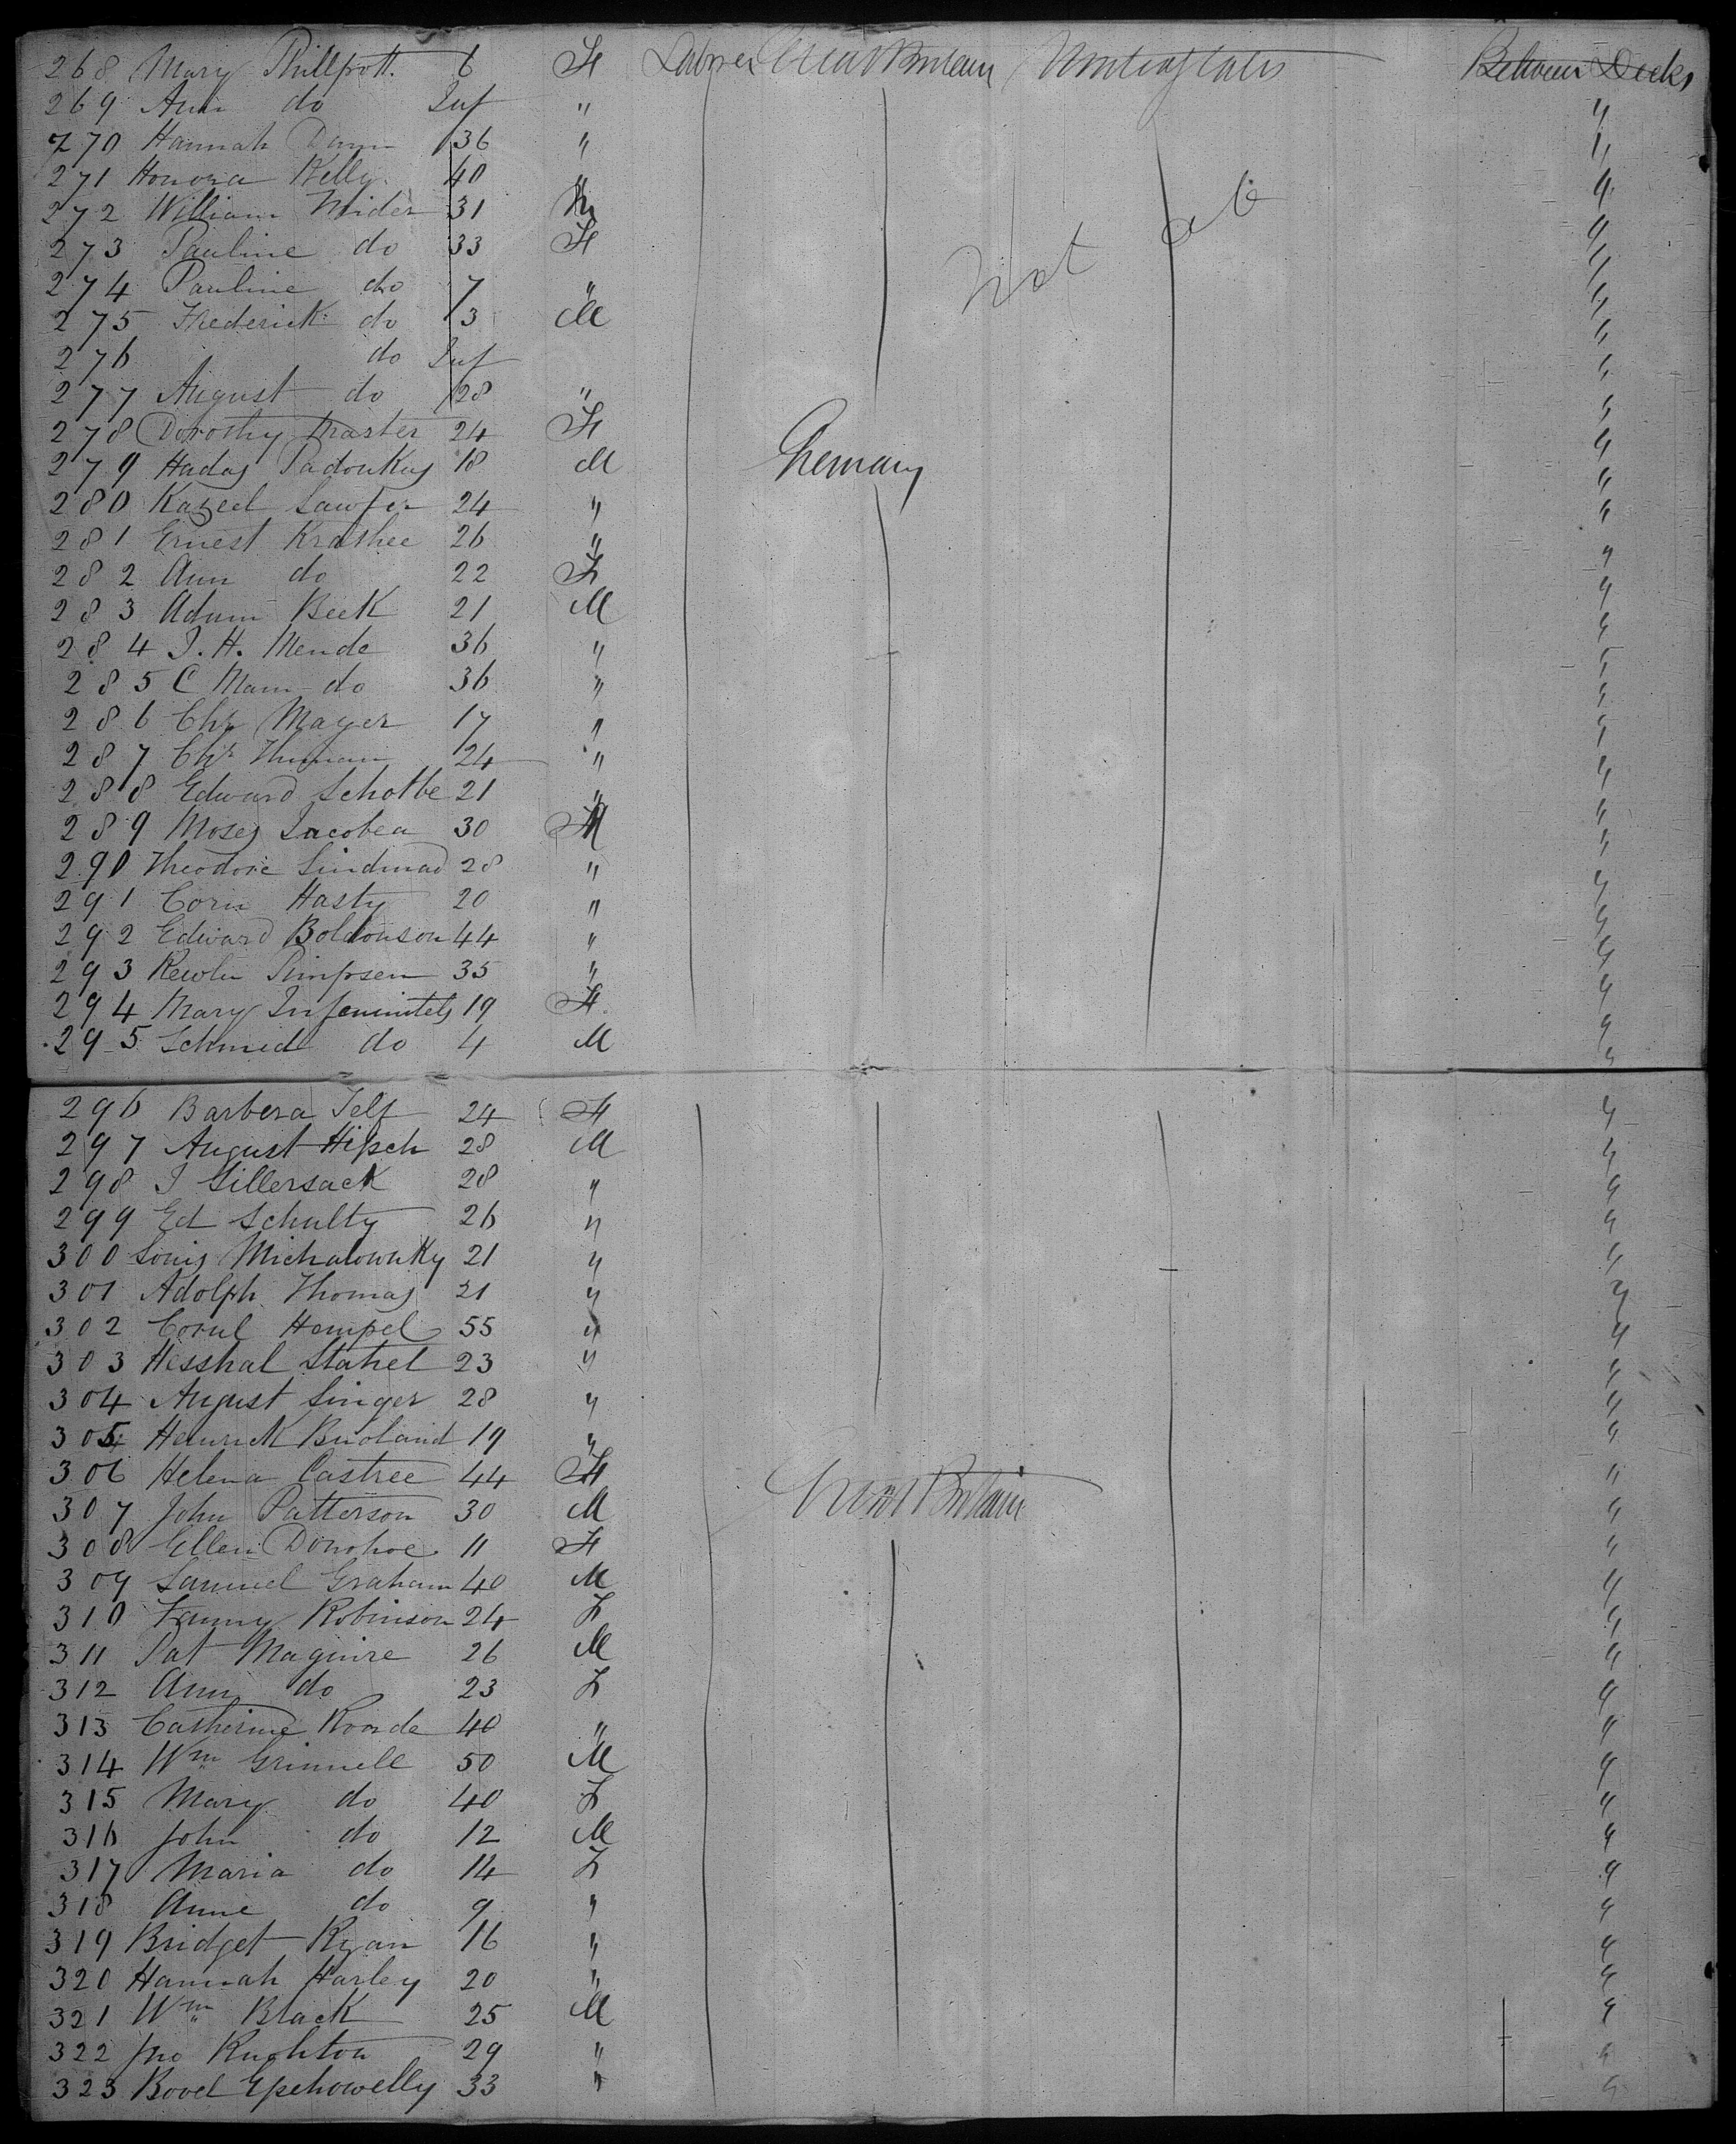 268 Mary Phillpott 6 F Labrer Great Britain United States Between Decks
269 Ann do Inf " "
270 Hannah Dann 36 " "
271 Honora Kelly 40 " "
272 William Wider 31 M "
273 Pauline do 33 F "
274 Pauline do 7 " "
275 Frederick do 3 M "
276 do Inf "
277 August do 28 " "
278 Dorothy Master 24 F "
279 Hadas Padoukas 18 M Germany "
280 Kazeel Sawfer 24 " "
281 Ernest Krashee 26 " "
282 Ann do 22 F "
283 Adam Beek 21 M "
284 J. H. Mende 36 " "
285 C Mam do 36 " "
286 Chr Mayer 17 " "
287 Chr 24 " "
288 Edward Schotbe 21 " "
289 Moses Jacobea 30 M "
290 Theodore Lindmad 28 " "
291 Corn Hasty 20 " "
292 Edward Boldonson 44 " "
293 Pimpsen 35 " "
294 Mary 19 F "
295 Schmid do 4 M "
296 Barbera Telf 24 F "
297 August Hipsch 28 M "
298 J Gillersack 28 " "
299 Ed Schulty 26 " "
300 Louis Michalownky 21 " "
301 Adolph Thomas 21 " "
302 Cornl Hempel 55 " "
303 Hesshal Stahel 23 " "
304 August Singer 28 " "
305 Heinrick Buoland 19 " "
306 Helena Castree 44 F "
307 John Patterson 30 M Great Britain "
308 Ellen Donohoe 11 F "
309 Samuel Graham 40 M "
310 Fanny Robinson 24 F "
311 Pat Maguire 26 M "
312 Ann do 23 F "
313 Catherine Roode 40 " "
314 Wm Grinnell 50 M "
315 Mary do 40 F "
316 John do 12 M "
317 Maria do 14 F "
318 Anne do 9 " "
319 Bridget Ryan 16 " "
320 Hannah Harley 20 " "
321 Wm Black 25 M "
322 Jno Rughton 29 " "
323 Bovel Epehowelly 33 " "